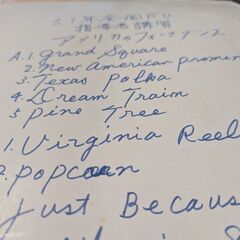 51年全国FD
指導者講習
アメリカのフォークダンス
A.1. Grand Square
2. New American promen
3. Texas Polka
4. Dream Train
5 Pine Tree
1. Virginia Reel
2. Popcorn
Just Becaus